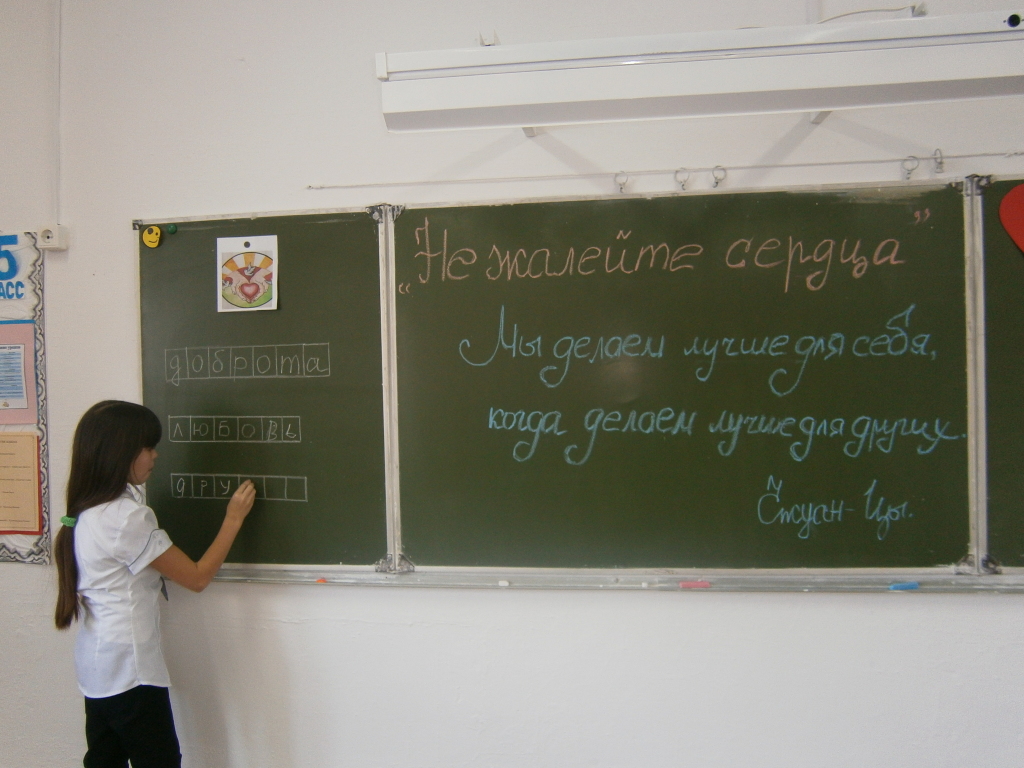 5
АСС
доброта
любовь
дру
„Не жалейте сердца”
Мы делаем лучше для себя,
когда делаем лучше для других.
Чжуан-Цзы.